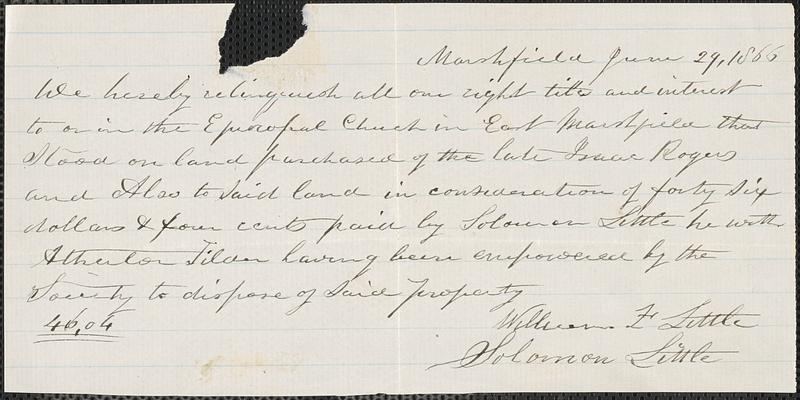 Marshfield June 29, 1866
We hereby relinquish all our right title and interest
to or in the Episcopal Church in East Marshfield that
Stood on land purchased of the late Isaac Rogers
and Also to said land in consideration of forty six
dollars & four cents paid by Solomon Little he with
Atherton Tilden having been empowered by the
Society to dispose of said property
46,04
William F Little
Solomon Little